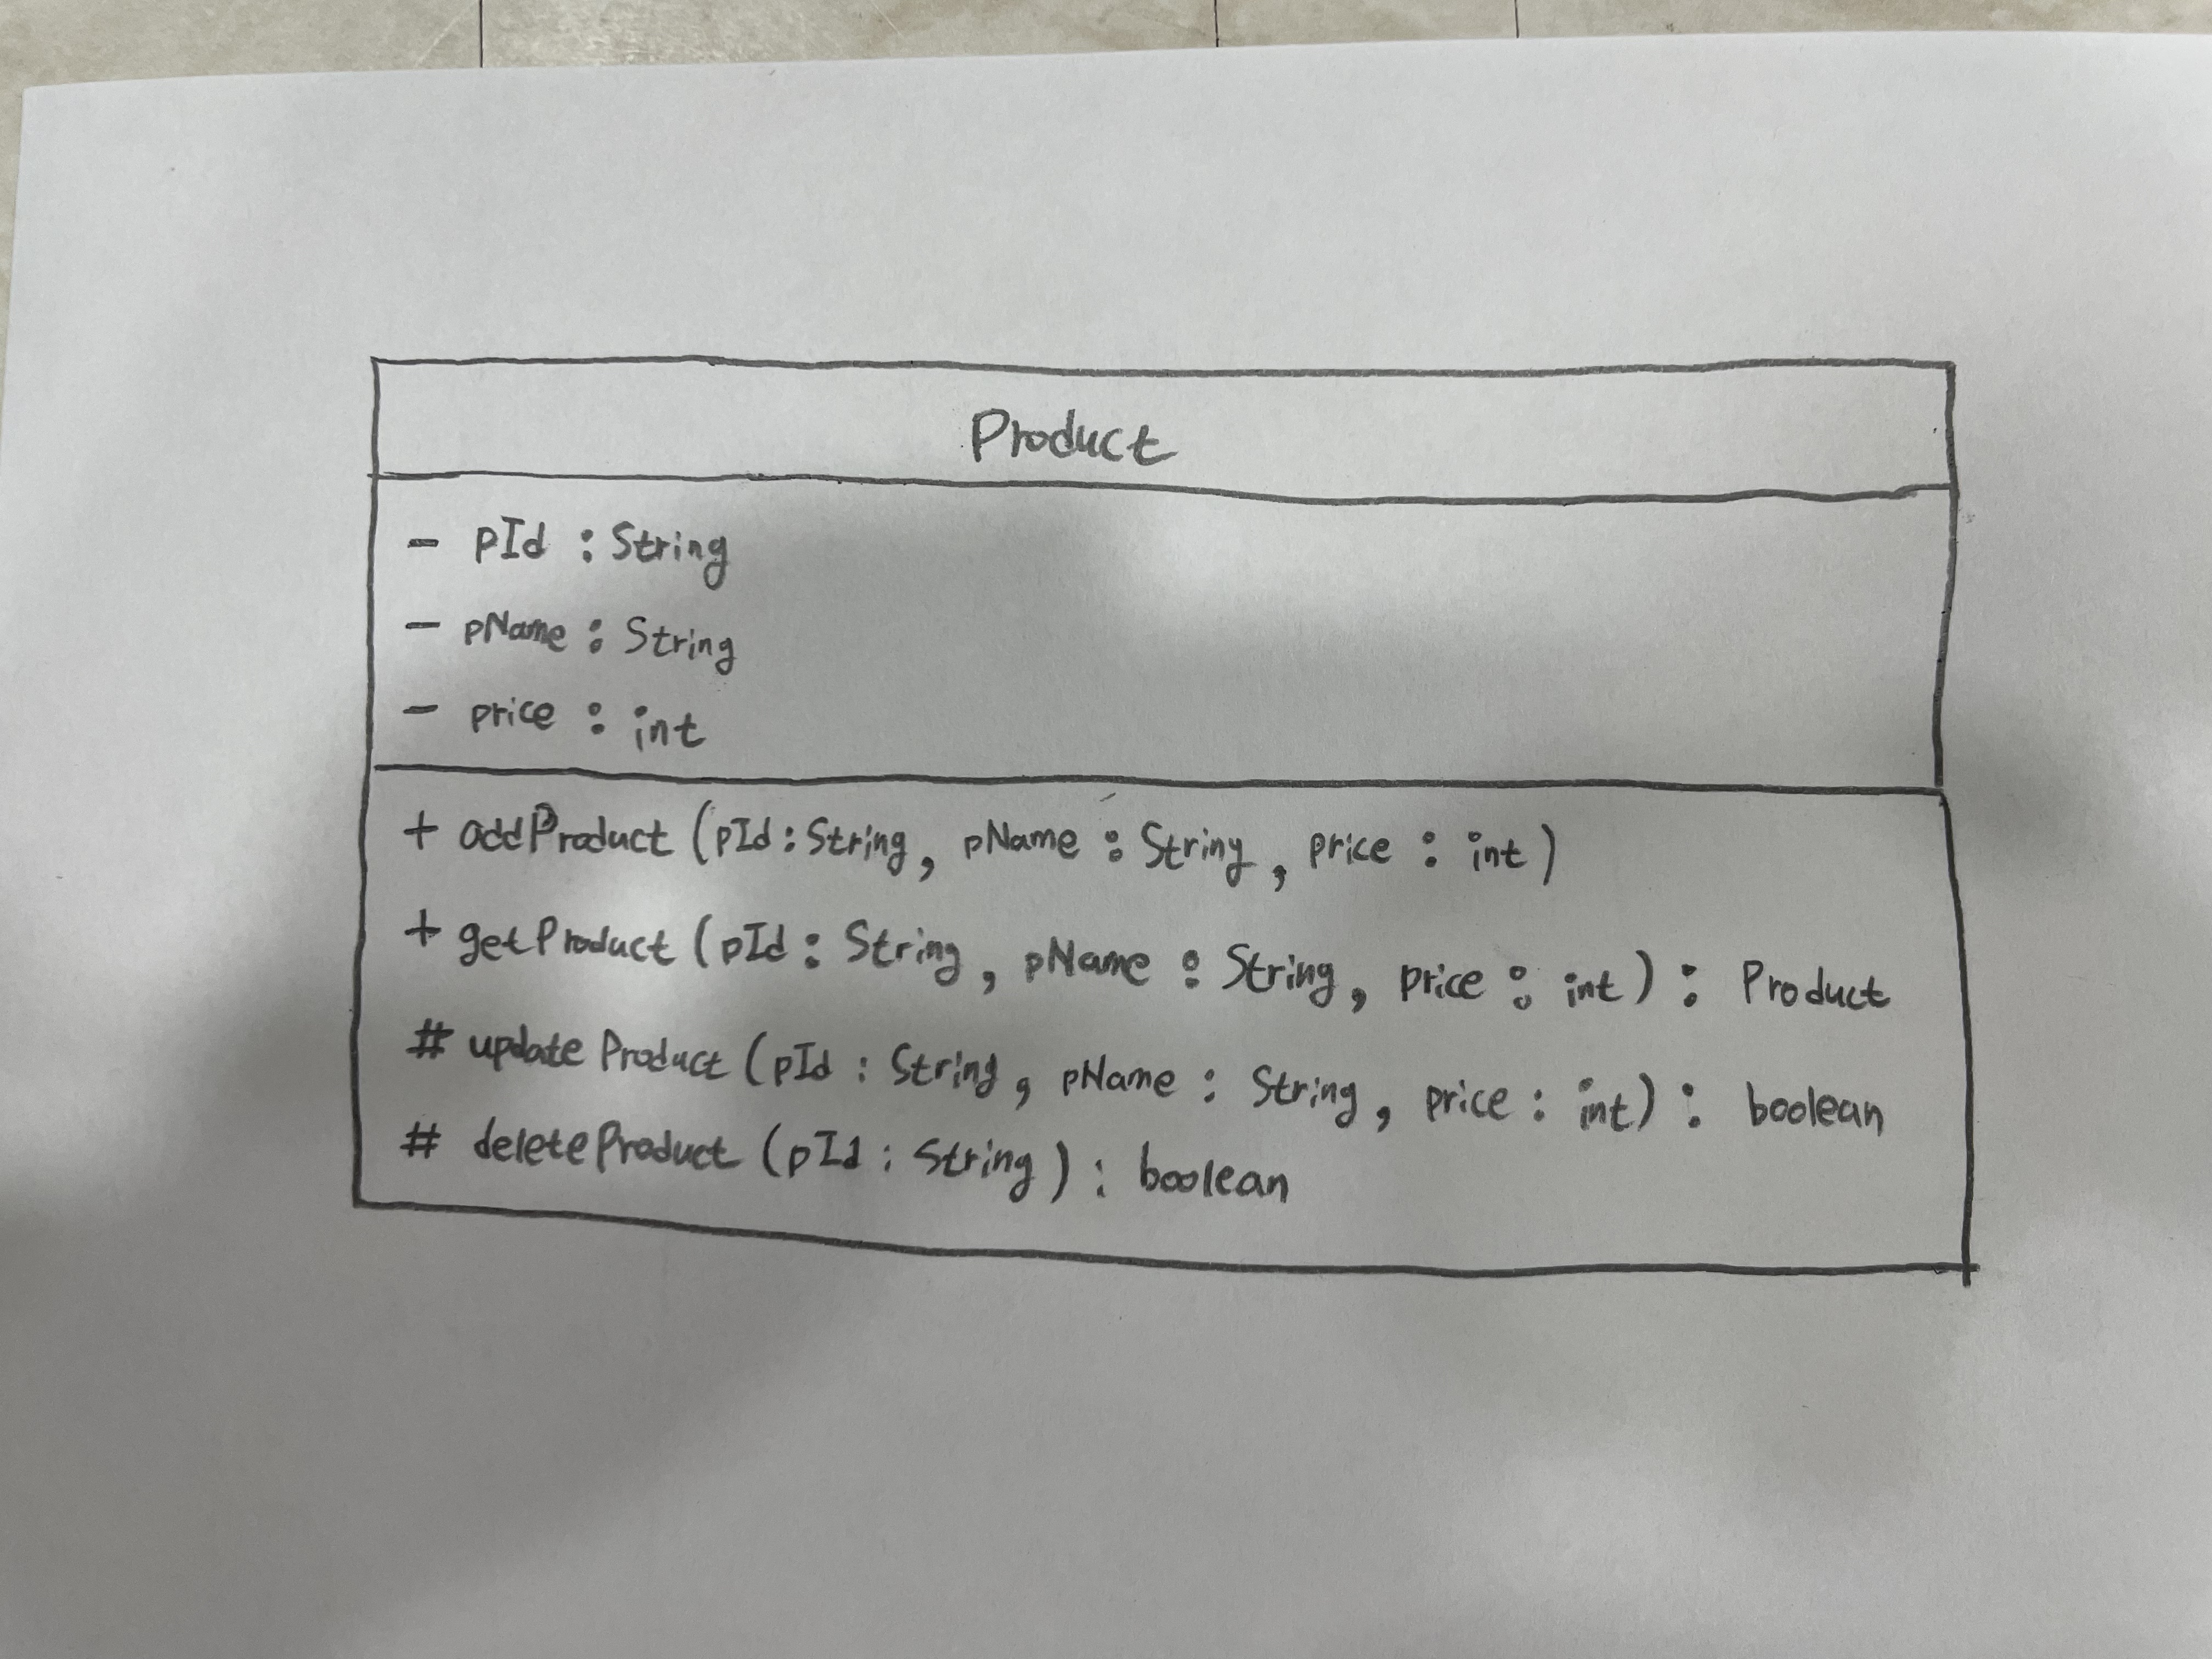 Product
- pId : String
- pName : String
- price : int
+ addProduct (pId : String, pName : String, price : int)
+ getProduct (pId : String, pName : String, price : int) : Product
# updateProduct (pId : String, pName : String, price : int) : boolean
# deleteProduct (pId : String) : boolean